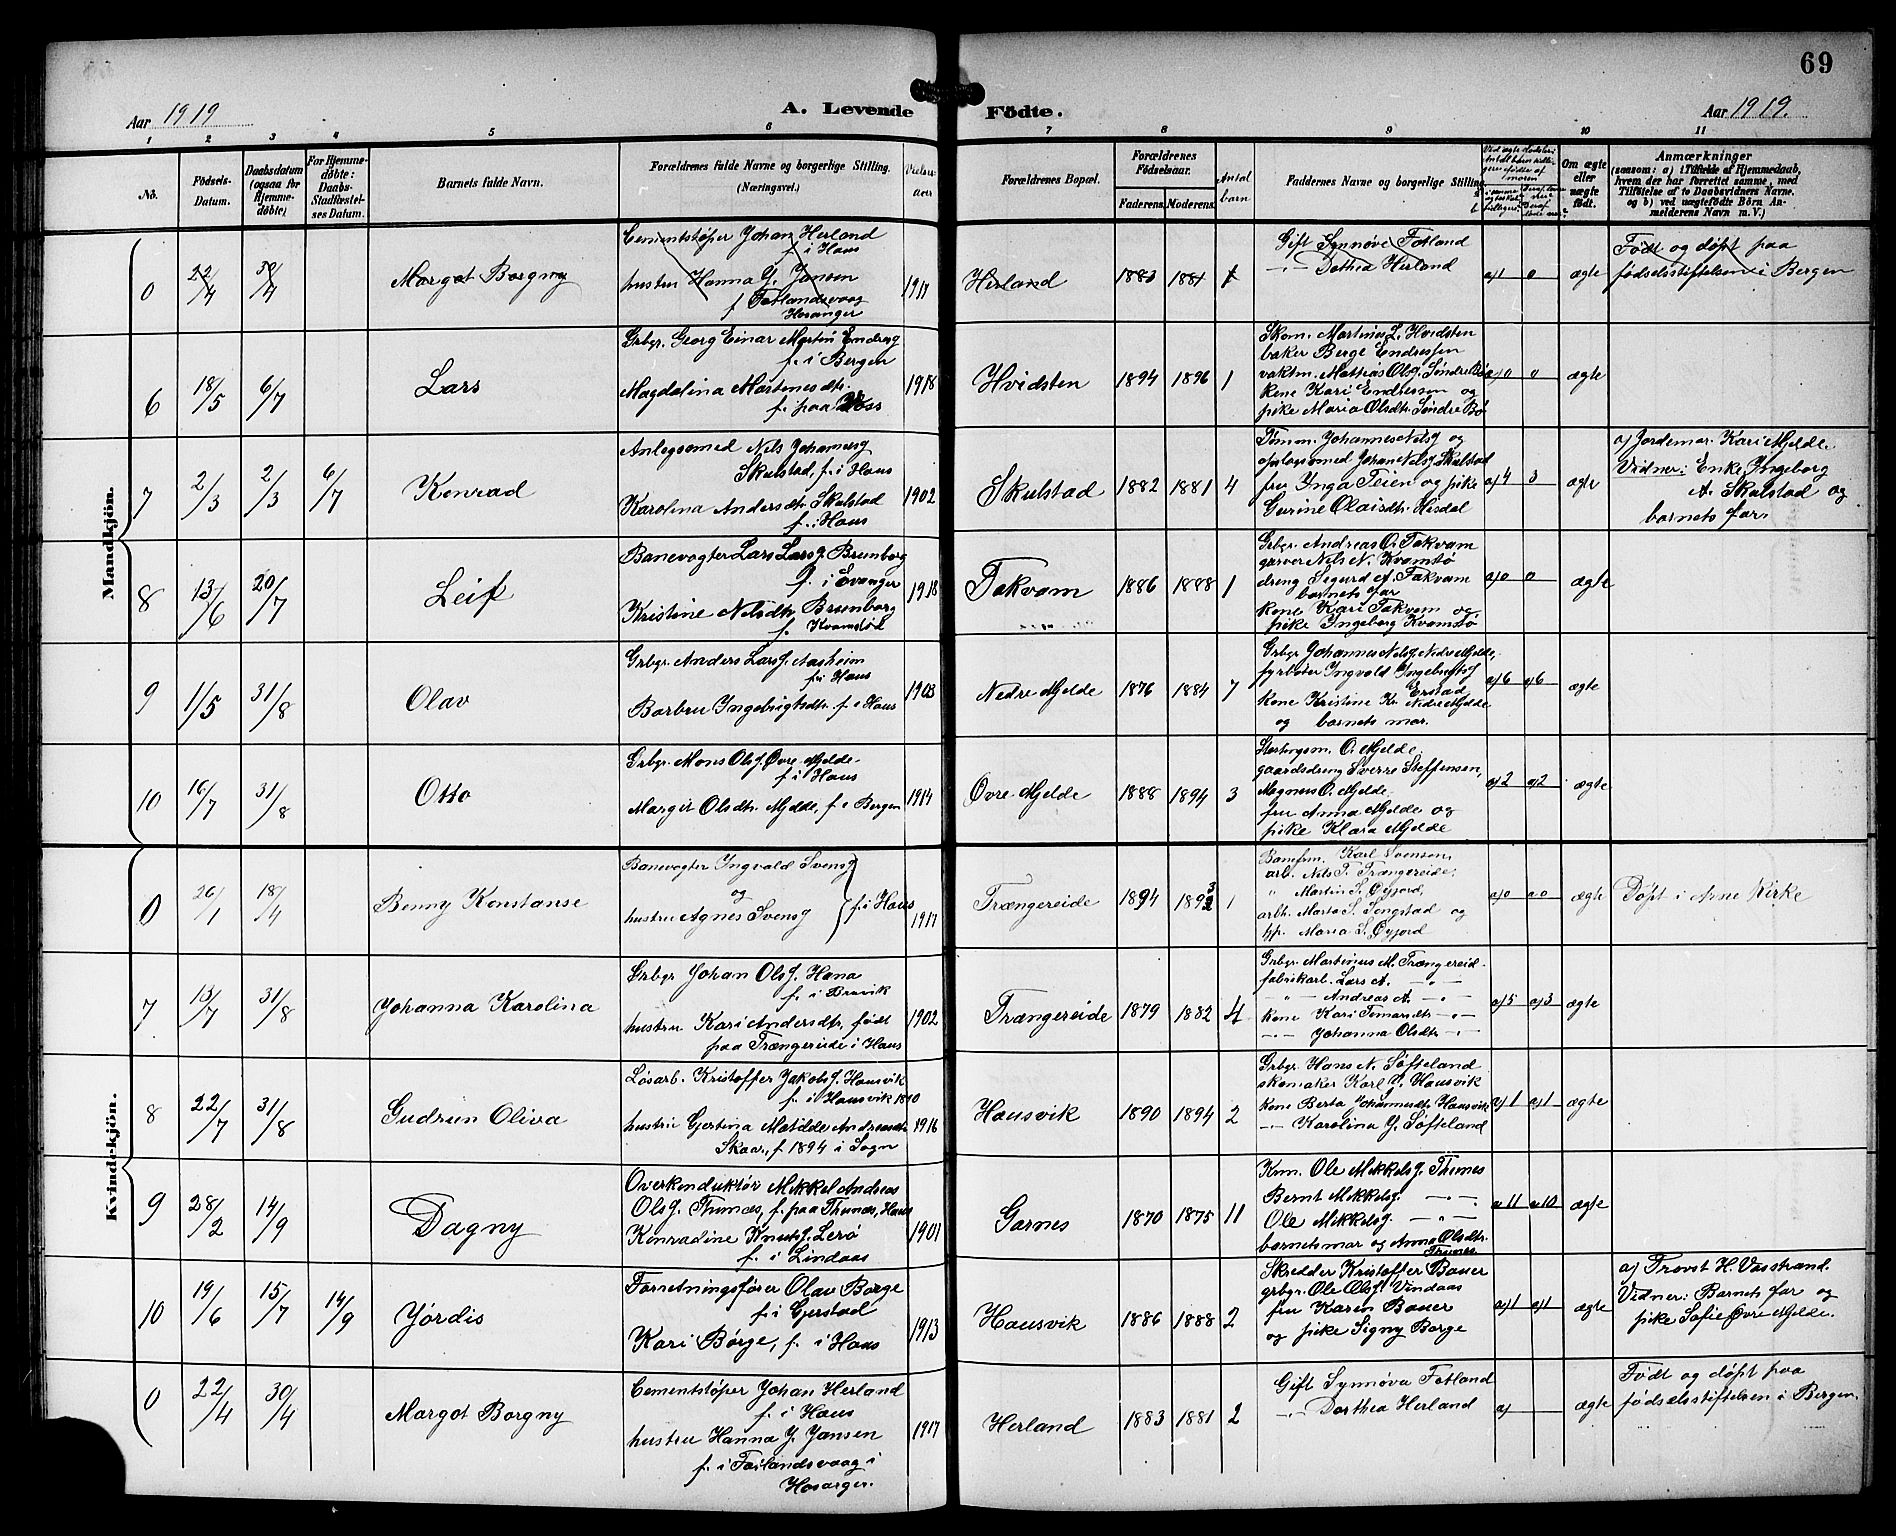 69
Aar 1919
A. Levende Födte.
Aar 1919.
1 2 3 4 5 6 7 8 9 10 11
No.
Födsels-Datum.
Daabsdatum (ogsaa for Hjemme-döbte)
For Hjemme-döbte: Daabs-Stadfæstel-ses Datum.
Barnets fulde Navn.
Forældrenes fulde Navne og borgerlige Stilling.
(Næringsvei.)
Vielses-aar
Forældrenes Bopæl.
Forældrenes Födselsaar.
Faderens. Moderens.
Antal barn
Faddernes Navne og borgerlige Stilling.
Om ægte eller uægte födt.
Anmærkninger
(saasom: a) i Tilfælde af Hjemmedaab, hvem der har forrettet samme, med Tilföielse af to Daabsvidners Navne. og b) ved uægtefödte Börn An-melderens Navn m. V.)
Mandkjön.
0 22/4 30/4 Margot Borgny
Cementstøper Johan Herland
f. i Haus
hustru Hanna J. Jansen
f. Fotlandsvaag
Hosanger
1917 Herland 1883 1881 1
Gift Synnøve Fotland
-"- Dothea Herland
a/1 0 ægte
Født og døpt paa
fødselsstiftelsen i Bergen
6 18/5 6/7 Lars
Grbgr. Georg Einar Martin Endresg
f. i Bergen
Magdalina Martenesdtr.
f. paa Voss
1918 Hvidsten 1894 1896 1
Skom. Martines L. Hvidsten
baker Berge Endressen
vaktm. Mathias Olsg. Søndre Bø
kone Kari Endressen og
pike Maria Olsdtr. Søndre Bø
a/0 0 ægte
7 2/3 2/3 6/7 Konrad
Anlegsomed Nils Johannesg
Skulstad, f. i Haus
Karolina Andersdtr. Skulstad
f. i Haus
1902 Skulstad 1882 1881 4
Tømm. Johannes Nilsg og
Johan Nilsg Skulstad
fru Inga Teien og pike
Gurine Olaisdtr. Hisdal
a/4 3 ægte
a) Jordemor Kari Mjelde.
Vidner: Enke Ingeborg
A. Skulstad og
barnets far.
8 13/6 20/7 Leif
Banevogter Lars Larsg. Brunborg
f. i Evanger
Kristine Nilsdtr. Brunborg
f. Kvamstød
1918 Takvam 1886 1888 1
Grbgr. Andreas O. Takvam
garver Nils N. Kvamstø
dreng Sigurd A. Takvam
barnets far
kone Kari Takvam og
pike Ingeborg Kvamstø
a/0 0 ægte
9 1/5 31/8 Olav
Grbgr. Anders Larsg. Aasheim
f. i Haus
Barbru Ingebrigtsdtr. f. i Haus
1903 Nedre Mjelde 1876 1884 7
Grbgr Johannes Nilsg Nedre Mjelde,
fyrbøter Ingvald Ingebrigtsg
Erstad
kone Kristine Kr. Nedre Mjelde
og barnets mor.
a/6 a/6 ægte
10 16/7 31/8 Otto
Grbgr. Mons Olsg. Øvre Mjelde
f. i Haus
Margit Olsdtr. Mjelde, f. i Bergen
1914 Øvre Mjelde 1888 1894 3
Stortingsm. O. Mjelde.
gaardsdreng Sverre Steffensen,
Magnus O. Mjelde.
fru Anna Mjelde og
pike Klara Mjelde
a/2 a/2 ægte
Kvindekjön.
0 26/1 18/4 Benny Konstanse
Banevogter Ingvald Svensg
og
hustru Agnes Svensg
f. i Haus
1917 Trængereide 1894 1893 1
Banefm. Karl Svensen,
arb. Nils T. Trængereide,
" Martin S. Øyjord,
arb. Marta S. Songstad og
Maria S. Øyjord
a/0 a0 ægte Døpt i Arne Kirke
7 13/7 31/8 Johanna Karolina
Grbgr Johan Olsg. Hana
f. i Bruvik
hustru Kari Andersdtr. født
paa Trængereide i Haus
1902 Trængereide 1879 1882 4
Grbgr. Martinus M. Trængereid
fabrikarb. Lars A. -"-
-"- Andreas A. -"-
kone Kari Tomasdtr -"-
-"- Johanna Olsdtr -"-
a/5 a/3 ægte
8 22/7 31/8 Gudrun Oliva
Løsarb. Kristoffer Jakobsg. Hausvik
f. i Hausvik 1890
hustru Gjertina Matilde Andreasdtr
Skaar, f 1894 i Sogn
1916 Hausvik 1890 1894 2
Grbgr Hans N. Softeland
skomaker Karl J. Hausvik
kone Berta Johannesdtr Hausvik
-"- Karolina J. Softeland
a/1 a/1 ægte
9 28/2 14/9 Dagny
Overkonduktør Mikkel Andreas
Olsg. Thunes, f. paa Thunes, Haus
Konradine Knutsg. Lerø
f. i Lindaas
1901 Garnes 1870 1875 11
Knm. Ole Mikkelsg. Thunes
Bernt Mikkelsg. -"-
Ole Mikkelsg. -"-
barnets mor og Anna Olsdtr.
Thunes
a/11 a/10 ægte
10 19/6 15/7 14/9 Hjørdis
Forretningsfører Olav Borge
f. i Gjerstad
Kari Børge, f. i Haus
1913 Hausvik 1886 1888 2
Skredder Kristoffer Bauer
grbgr. Ole Olsg. Vindaas
fru Karen Bauer
og pike Signy Borge
a/1 a/1 ægte
a) Provst H. Vasstrand.
Vidner: Barnets far og
pike Sofie Øvre Mjelde.
0 22/4 30/4 Margot Borgny
Cementstøper Johan Herland
f. i Haus
hustru Hanna J. Jansen
f. i Fotlandsvaag i
Hosanger.
1917 Herland 1883 1881 2
Gift Synnøva Fotland
-"- Dorthea Herland
a) ægte
Født og døpt paa
fødselsstiftelsen i Bergen.